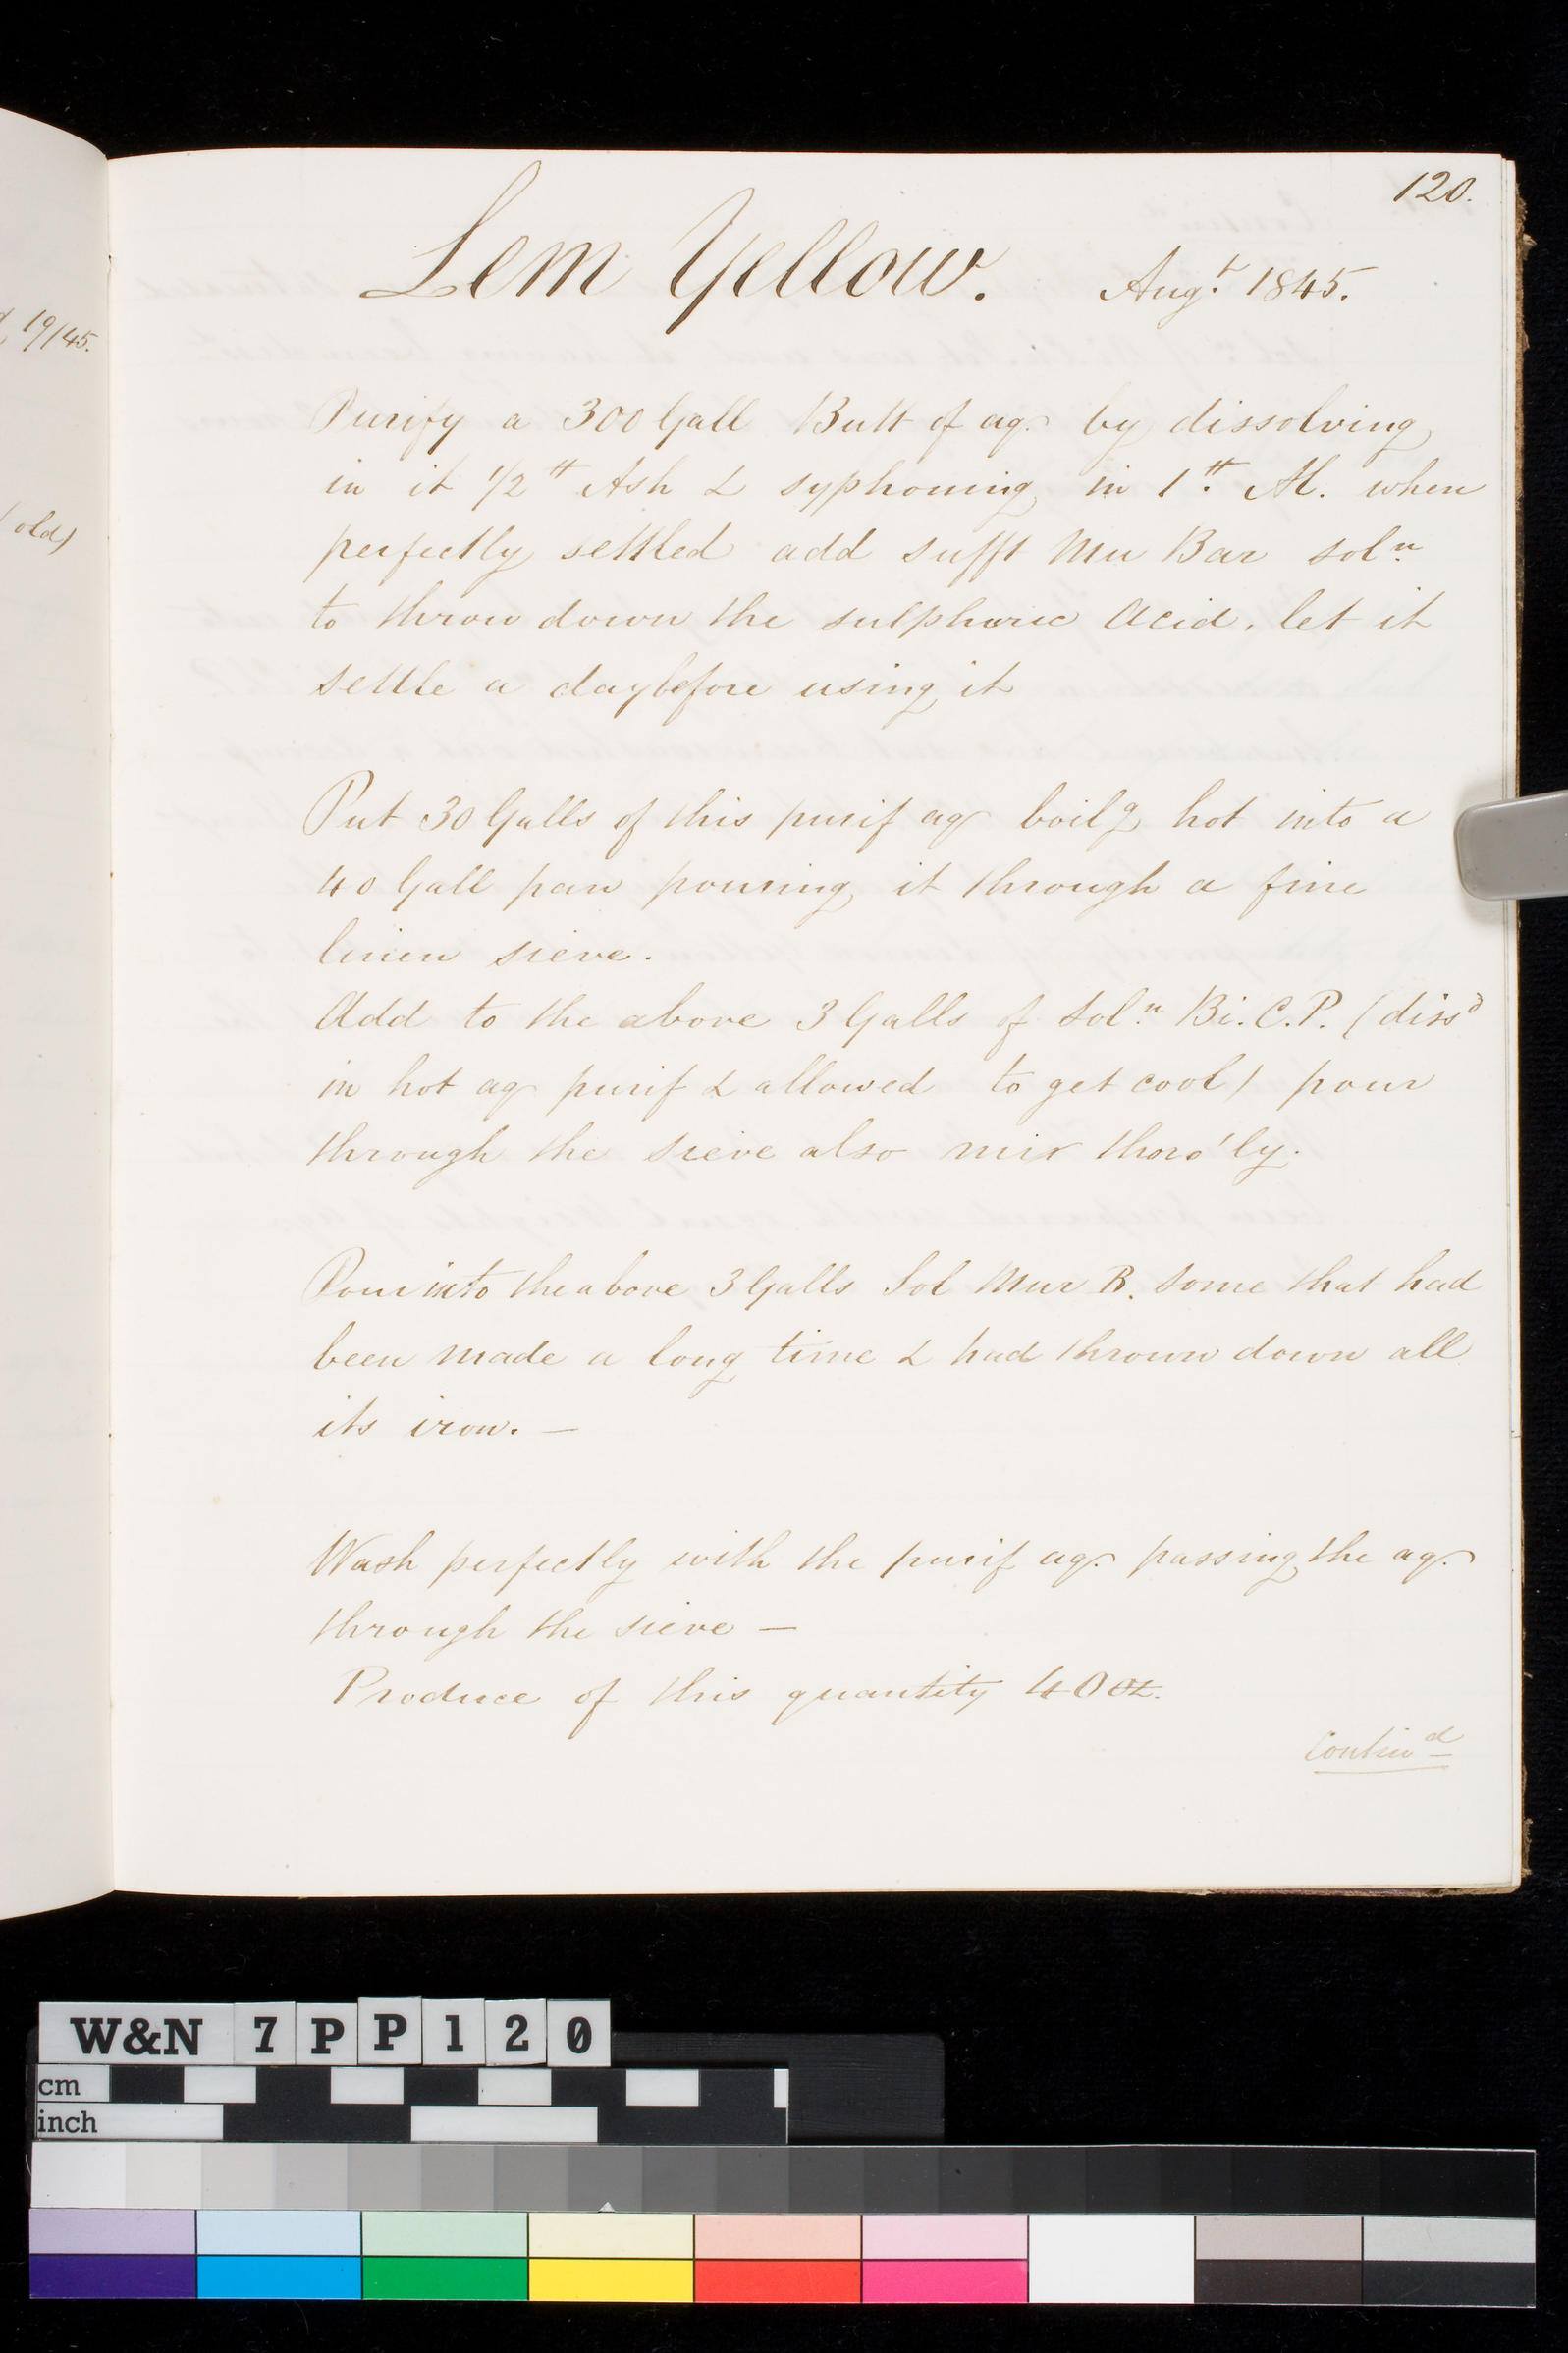 120.
Lem Yellow. Augt. 1845.
19/45.
old)
Purify a 300 Gall Butt of aq. by dissolving
in it 1/2 tt Ash & syphoning in 1 tt. Al. when
perfectly settled add sufft Mu Bar soln.
to throw down the sulphuric Acid, let it
settle a day before using it
Put 30 Galls of this purif aq boilg hot into a
40 Gall pan pouring it through a fine
linen sieve.
Add to the above 3 Galls of Soln. Bi. C. P. (dissd
in hot aq purif & allowed to get cool) pour
through the sieve also mix thoro'ly.
Pour into the above 3 Galls Sol Mur B. some that had
been made a long time & had thrown down all
its iron. —
Wash perfectly with the purif aq. passing the aq.
through the sieve —
Produce of this quantity 40 oz.
Contind
W&N 7PP120
cm
inch